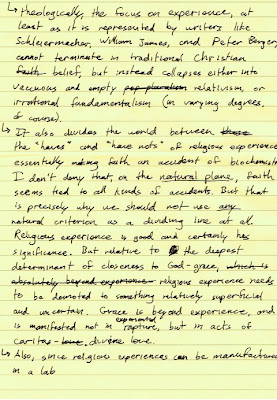 ↳ theologically, the focus on experience, at
least as it is represented by writers like
Schleiermacher, William James, and Peter Berger,
cannot terminate in traditional Christian
faith belief, but instead collapses either into
vacuous and empty relativism, or
irrational fundamentalism (in varying degrees,
of course).
↳ It also divides the world between these
the "haves" and "have nots" of religious experience
essentially making faith an accident of biochemistr
I don't deny that, on the natural plane, faith
seems tied to all kinds of accidents. But that
is precisely why we should not use any
natural criterion as a dividing line at all.
Religious experience is good and certainly has
significance. But relative to the deepest
determinant of closeness to God - grace, which is
absolutely beyond experience - religious experience needs
to be demoted to something relatively superficial
and uncertain. Grace is beyond experience, and
is manifested not in experiential rapture, but in acts of
caritas - love. divine love.
↳ Also, since religious experiences can be manufactured
in a lab